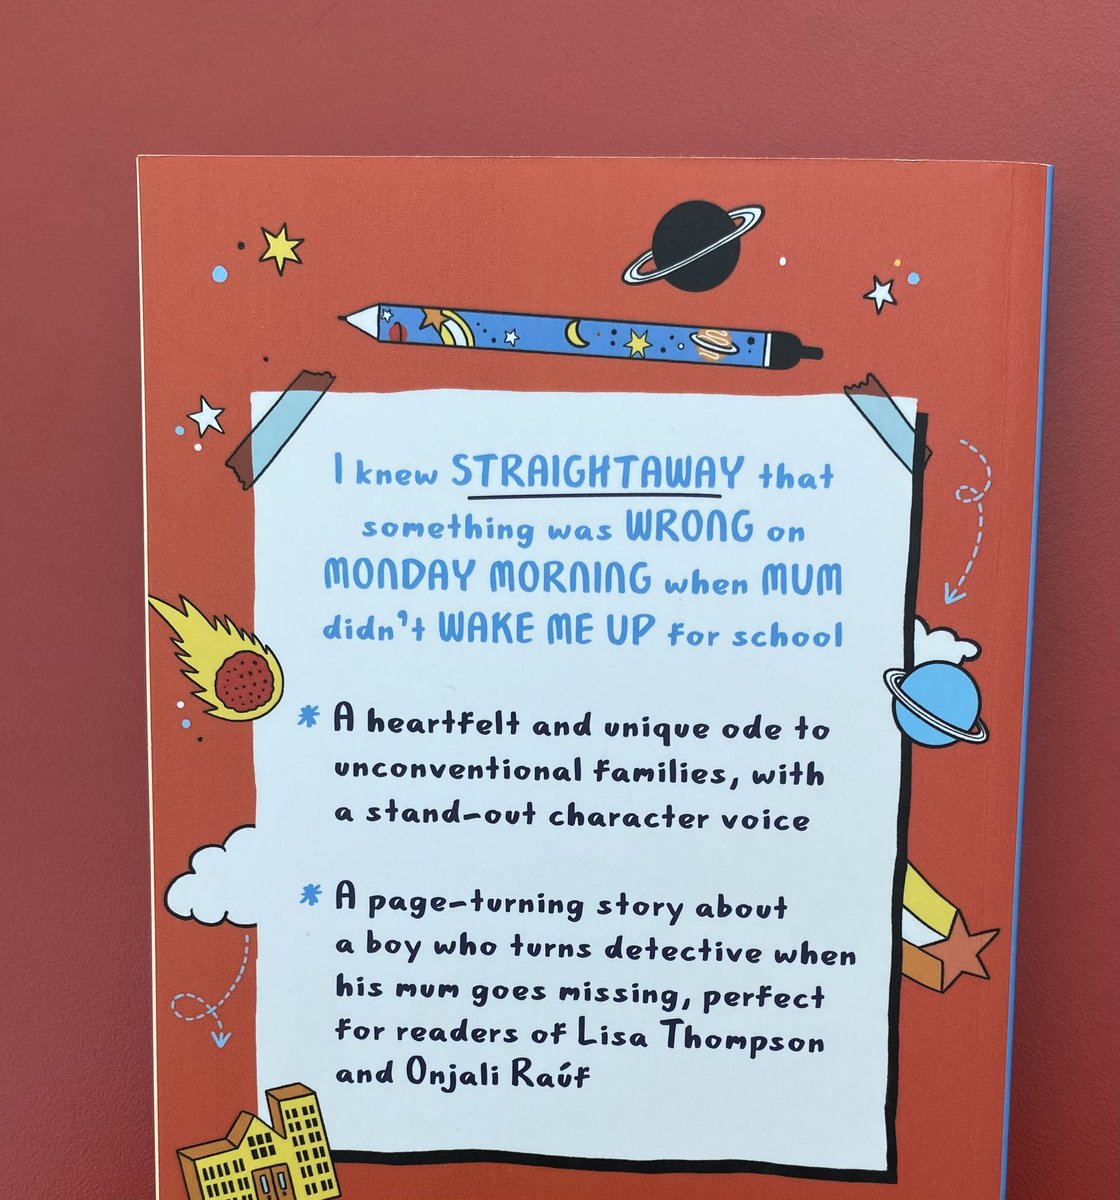 I knew STRAIGHTAWAY that
something was WRONG on
MONDAY MORNING when MUM
didn't WAKE ME UP for school
* A heartfelt and unique ode to
unconventional families, with
a stand-out character voice
* A page-turning story about
a boy who turns detective when
his mum goes missing, perfect
for readers of Lisa Thompson
and Onjali Raúf